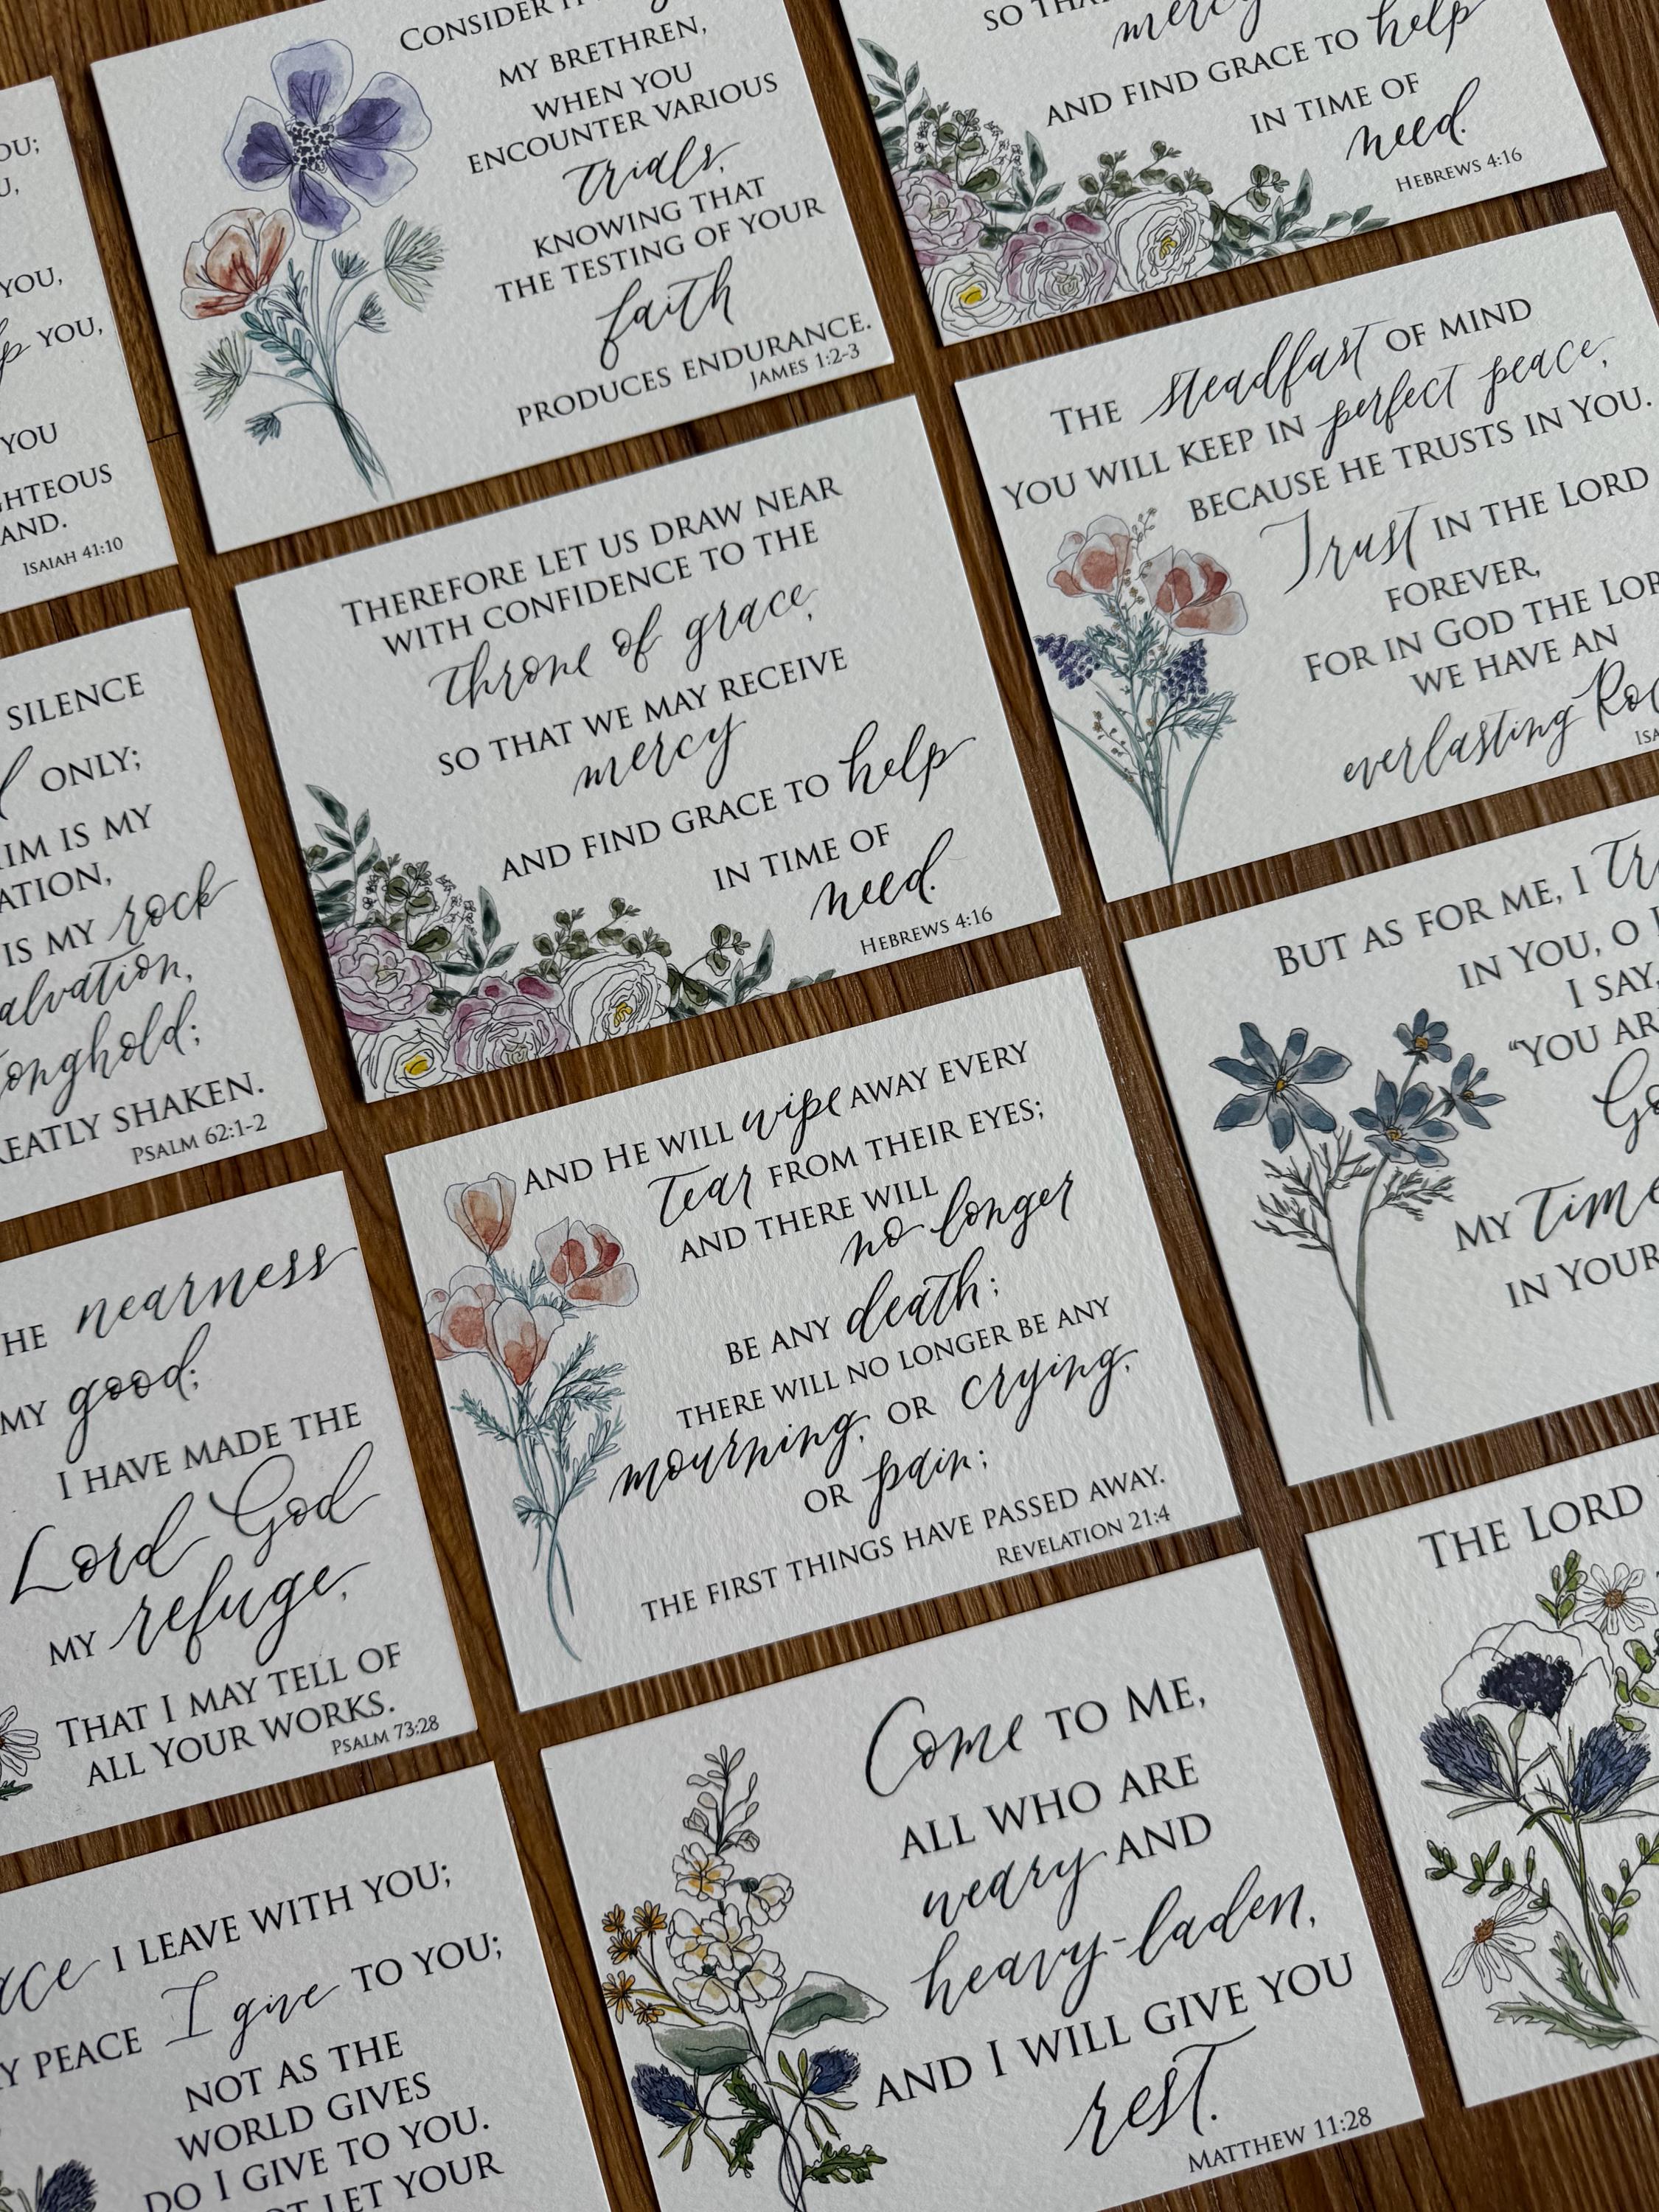 OU;
U,
YOU,
YOU,
YOU
HTEOUS
AND.
ISAIAH 41:10
CONSIDER
MY BRETHREN,
WHEN YOU
ENCOUNTER VARIOUS
trials,
KNOWING THAT
THE TESTING OF YOUR
faith
PRODUCES ENDURANCE.
JAMES 1:2-3
SO THA
mercy
AND FIND GRACE TO help
IN TIME OF
need.
HEBREWS 4:16
SILENCE
ONLY;
IM IS MY
ATION,
IS MY rock
alvation,
onghold;
EATLY SHAKEN.
PSALM 62:1-2
THEREFORE LET US DRAW NEAR
WITH CONFIDENCE TO THE
throne of grace,
SO THAT WE MAY RECEIVE
mercy
AND FIND GRACE TO help
IN TIME OF
need.
HEBREWS 4:16
THE steadfast OF MIND
YOU WILL KEEP IN perfect peace,
BECAUSE HE TRUSTS IN YOU.
Trust IN THE LORD
FOREVER,
FOR IN GOD THE LOR
WE HAVE AN
everlasting Roc
ISA
HE nearness
MY good;
I HAVE MADE THE
Lord God
MY refuge,
THAT I MAY TELL OF
ALL YOUR WORKS.
PSALM 73:28
AND HE WILL wipe AWAY EVERY
tear FROM THEIR EYES;
AND THERE WILL
no longer
BE ANY death;
THERE WILL NO LONGER BE ANY
mourning, OR crying,
OR pain;
THE FIRST THINGS HAVE PASSED AWAY.
REVELATION 21:4
BUT AS FOR ME, I tr
IN YOU, O
I SAY,
"YOU AR
Go
MY time
IN YOUR
ace I LEAVE WITH YOU;
Y PEACE I give TO YOU;
NOT AS THE
WORLD GIVES
DO I GIVE TO YOU.
OT LET YOUR
Come TO ME,
ALL WHO ARE
weary AND
heavy-laden,
AND I WILL GIVE YOU
rest.
MATTHEW 11:28
THE LORD